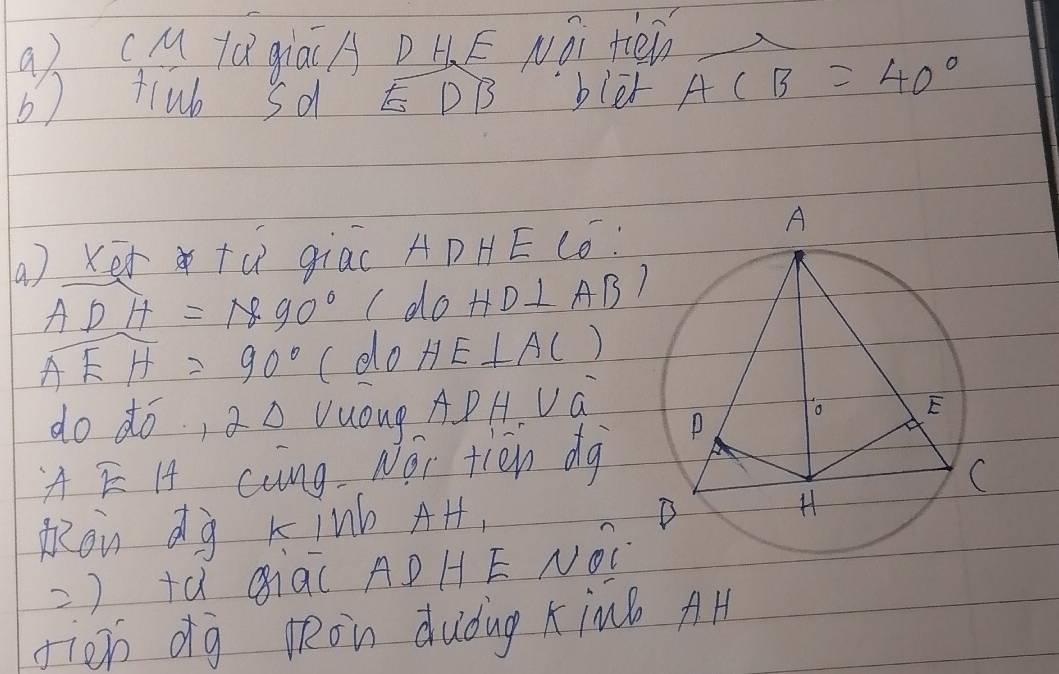 a) CM tứ giác A D H E Nội tiếp
b) tính sđ EDB biết ACB = 40°
a) Xét tứ giác ADHE có:
ADH = 90° (do HD⊥AB)
AEH = 90° (do HE⊥AC)
do đó, 2 Δ vuông ADH và
AEH cùng Nội tiếp đg
tròn đg kính AH,
=) tứ giác ADHE Nội
tiếp đg tròn đường kính AH
A
o
D
E
B
H
C